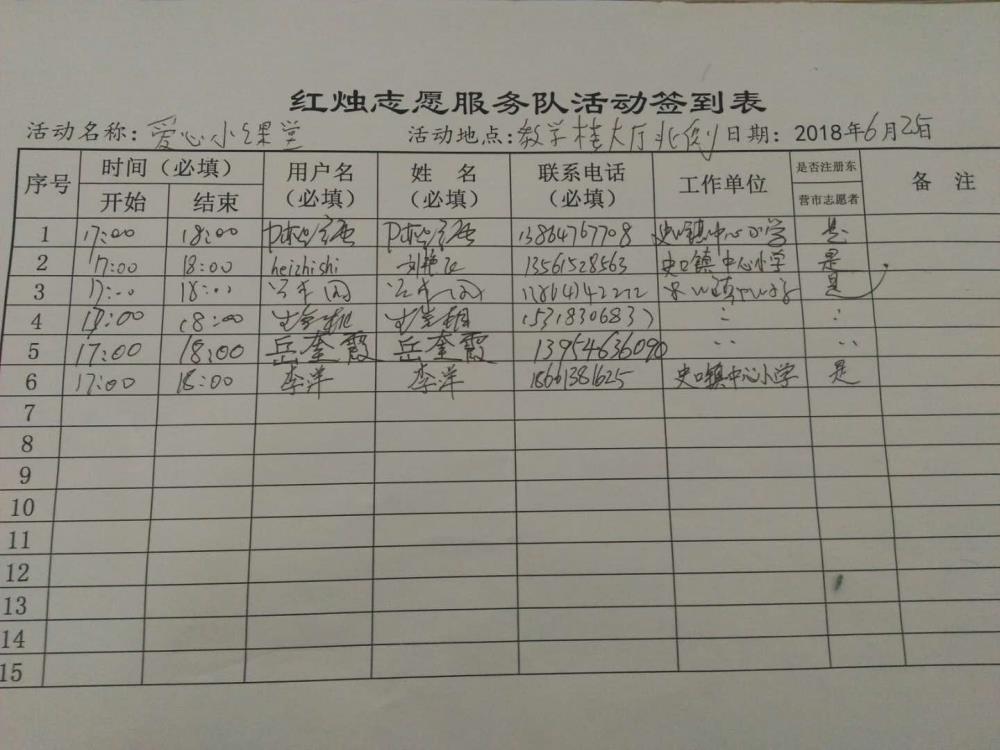 红烛志愿服务队活动签到表
活动名称：爱心小课堂 活动地点：教学楼大厅北侧 日期：2018年6月25日
序号 时间（必填） 用户名（必填） 姓名（必填） 联系电话（必填） 工作单位 是否注册东营市志愿者 备注
开始 结束
1 17:00 18:00 13864767708 史口镇中心小学 是
2 17:00 18:00 heizhishi 13561528563 史口镇中心小学 是
3 17:00 18:00 是
4 17:00 18:00
5 17:00 18:00 岳奎霞 岳奎霞 13954636090
6 17:00 18:00 李洋 李洋 18661381625 史口镇中心小学 是
7
8
9
10
11
12
13
14
15